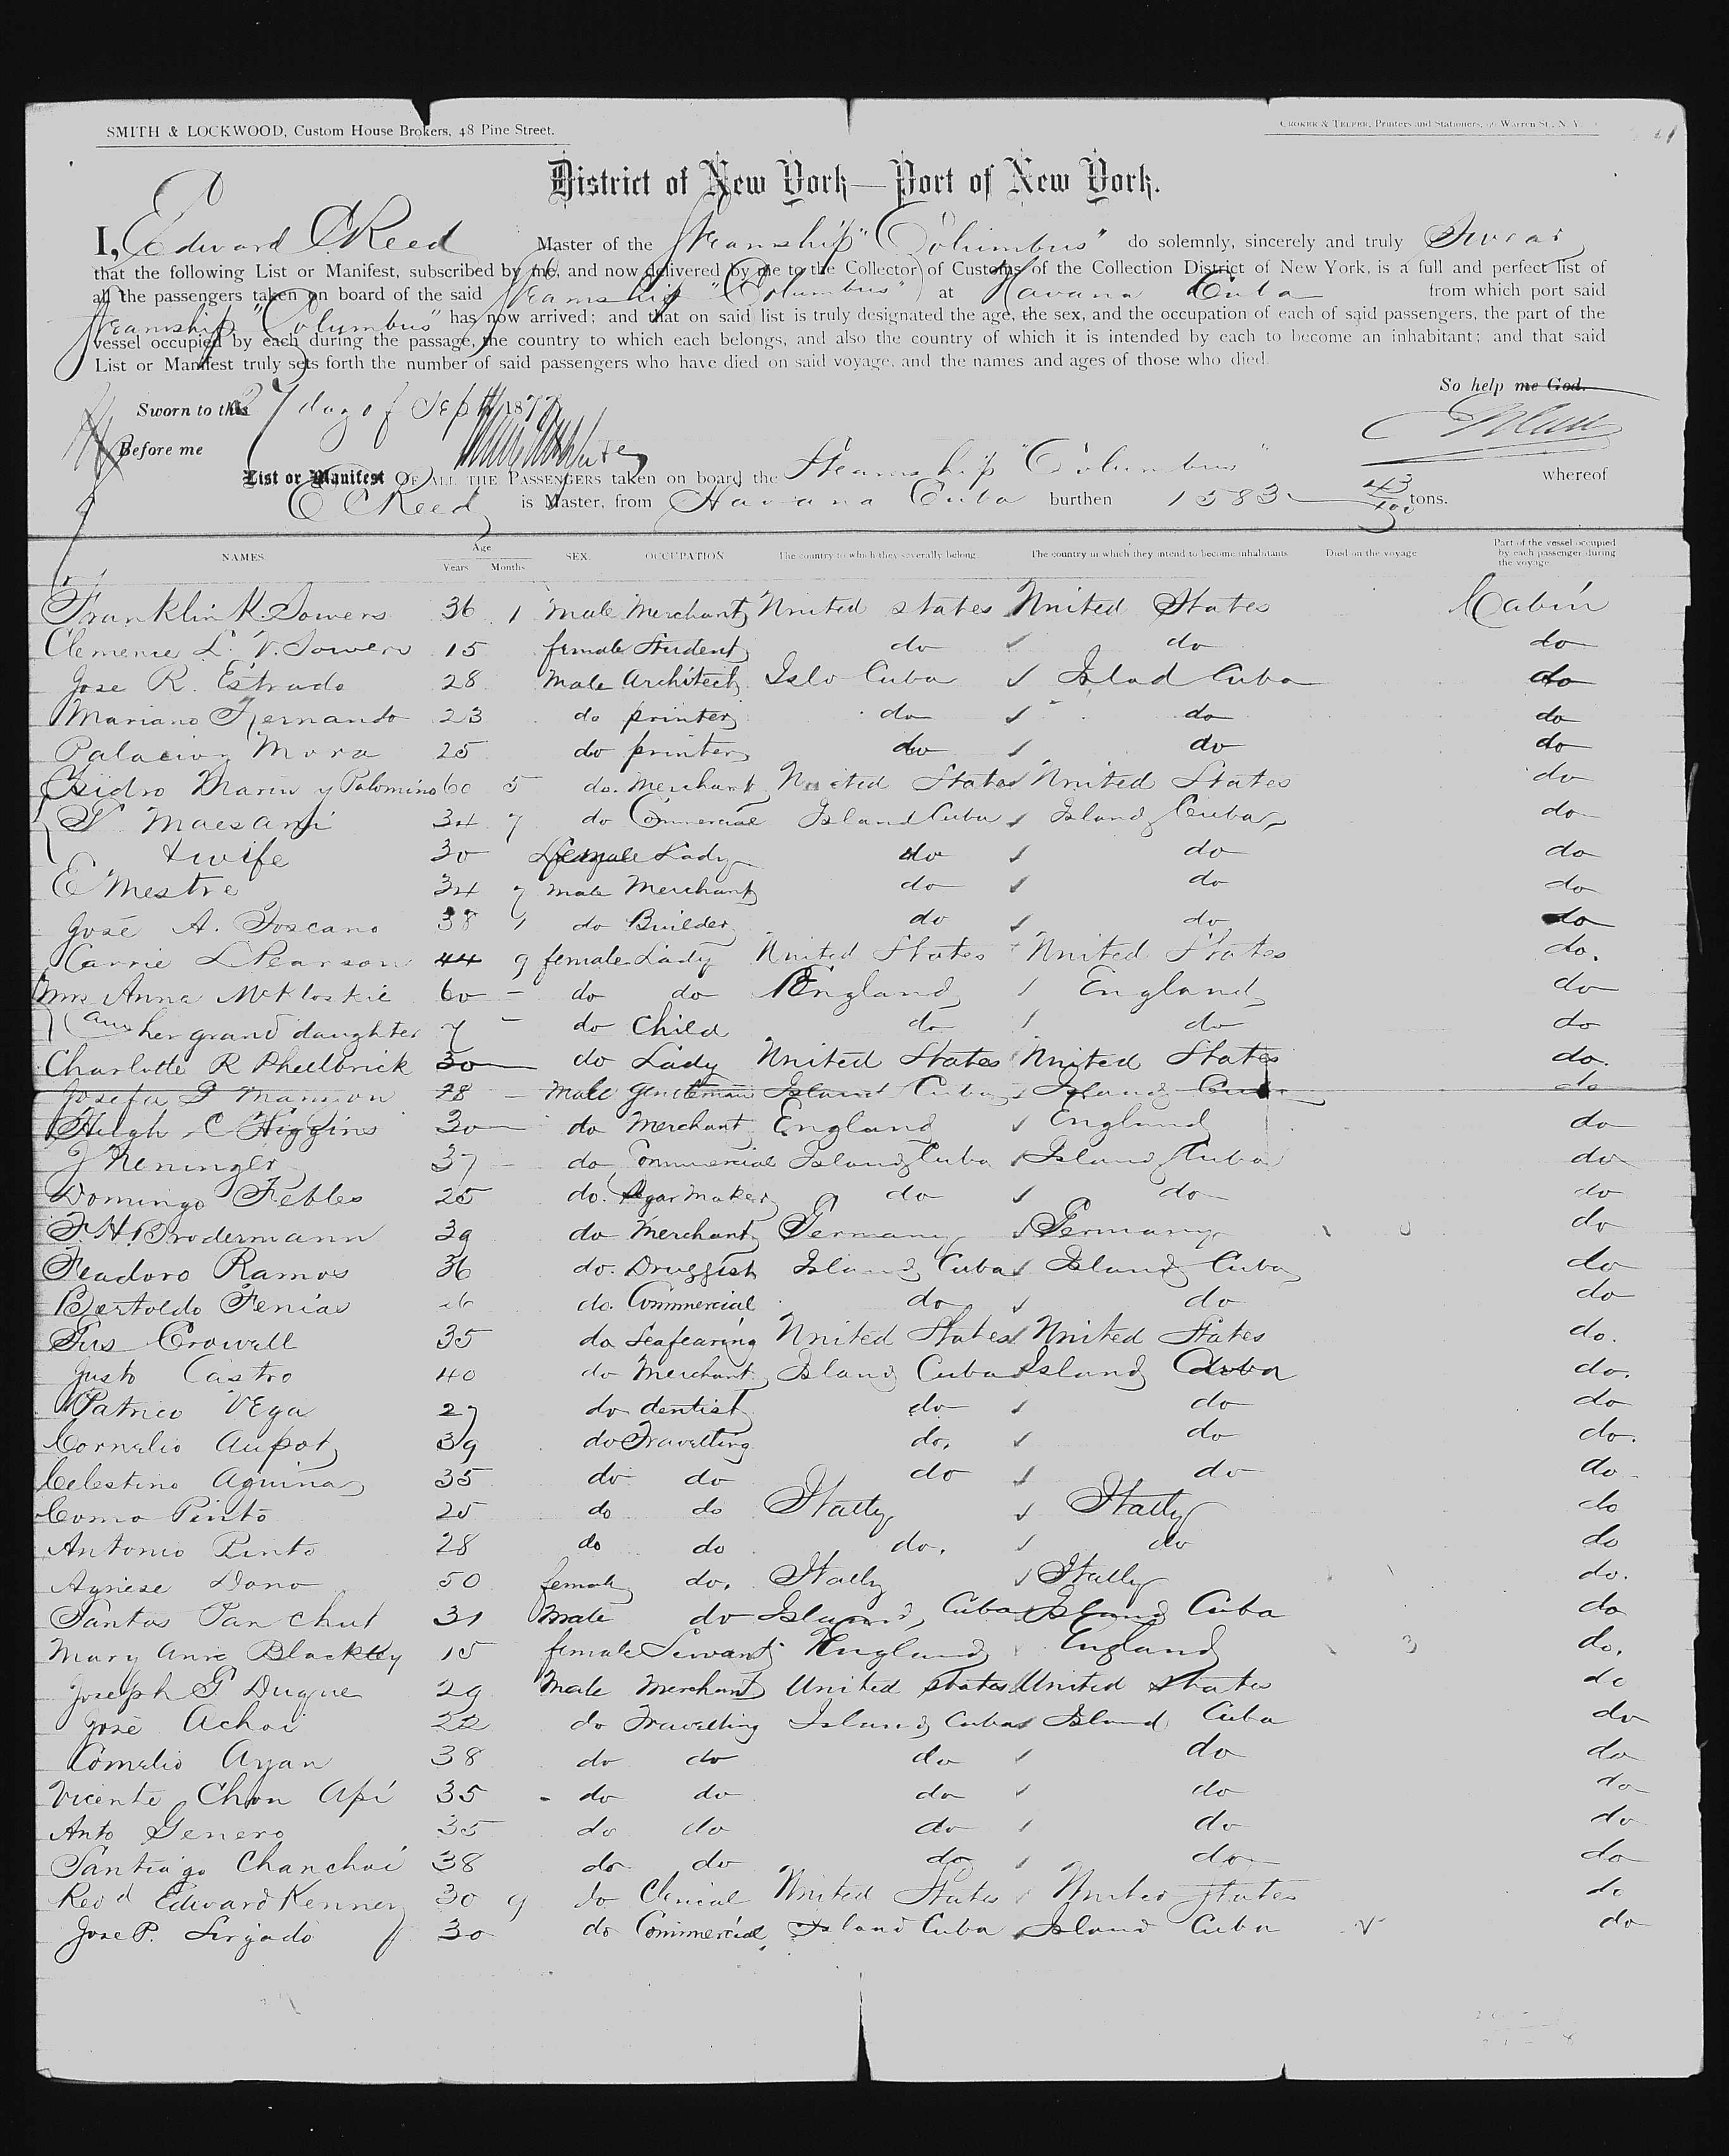 SMITH & LOCKWOOD, Custom House Brokers, 48 Pine Street.
CROKER & TELFER, Printers and Stationers, Warren St., N. Y.
District of New York—Port of New York.
I, Edward C Reed Master of the Steamship "Columbus" do solemnly, sincerely and truly Swear
that the following List or Manifest, subscribed by me, and now delivered by me to the Collector of Customs of the Collection District of New York, is a full and perfect list of
all the passengers taken on board of the said Steamship "Columbus" at Havana Cuba from which port said
Steamship "Columbus" has now arrived; and that on said list is truly designated the age, the sex, and the occupation of each of said passengers, the part of the
vessel occupied by each during the passage, the country to which each belongs, and also the country of which it is intended by each to become an inhabitant; and that said
List or Manifest truly sets forth the number of said passengers who have died on said voyage, and the names and ages of those who died.
So help me God.
Sworn to this 27 day of Sept 1877
Before me
List or Manifest OF ALL THE PASSENGERS taken on board the Steamship "Columbus" whereof
E C Reed is Master, from Havana Cuba burthen 1583 43/100 tons.
NAMES Age Years Months SEX. OCCUPATION The country to which they severally belong. The country in which they intend to become inhabitants Died on the voyage Part of the vessel occupied by each passenger during the voyage
Franklin K. Sowers 36 1 male Merchant United states United States Cabin
Clemence L. V. Sowers 15 female Student do do do
Jose R. Estrado 28 Male Architect Isld Cuba Islad Cuba do
Mariano Hernando 23 do printer do do do
Palacion Mora 25 do printer do do do
Isidro Marin y Palomino 60 5 do. Merchant United States United States do
P. Maesani 34 7 do Commercial Island Cuba Island Cuba do
& wife 30 female Lady do do do
E Mestre 34 7 male Merchant do do do
José A. Toscano 38 9 do Builder do do do
Carrie L Pearson 44 9 female Lady United States United States do.
Mrs Anna McKloskie 60 – do do England England do
and her grand daughter 7 – do Child do do do
Charlotte R Phellbrick 30 do Lady United States United States do.
Josefa G Mannon 28 – male Gentleman Island Cuba Island Cuba do
Hugh C Higgins 30 do Merchant England England do
J Neninger 37 – do Commercial Island Cuba Island Cuba do
Domingo Febles 25 do. Segar maker do do do
F. H. Brodermann 39 do Merchant Germany Germany do
Feadoro Ramos 36 do. Druggist Island Cuba Island Cuba do
Bertoldo Fenias 26 do. Commercial do do do
Gus Crowell 35 do Seafearing United States United States do.
Justo Castro 40 do Merchant Island Cuba Island Cuba do.
Patrico VEga 27 do dentist do do do
Cornelio Aupot 39 do Travelling do. do do.
Celestino Aguina 35 do do do do do
Como Pinto 25 do do Itally Itally do
Antonio Pinto 28 do do do. do do
Agnese Dono 50 female do. Itally Itally do.
Santos Pan Chut 31 Male do Island, Cuba Island Cuba do
Mary Anne Blackley 15 female Servant England England 3 do.
Joselph G Duque 29 Male Merchant United states United States do
José Achoi 22 do Travelling Island Cuba Island Cuba do
Cornelio Ayan 38 do do do do do
Vicente Chon Api 35 do do do do do
Anto Genero 35 do do do do do
Santiago Chanchoi 38 do do do do do
Revd Edward Kenney 30 9 do Clerical United States United States do
Jose P. Sirgado 30 do Commercial Island Cuba Island Cuba do